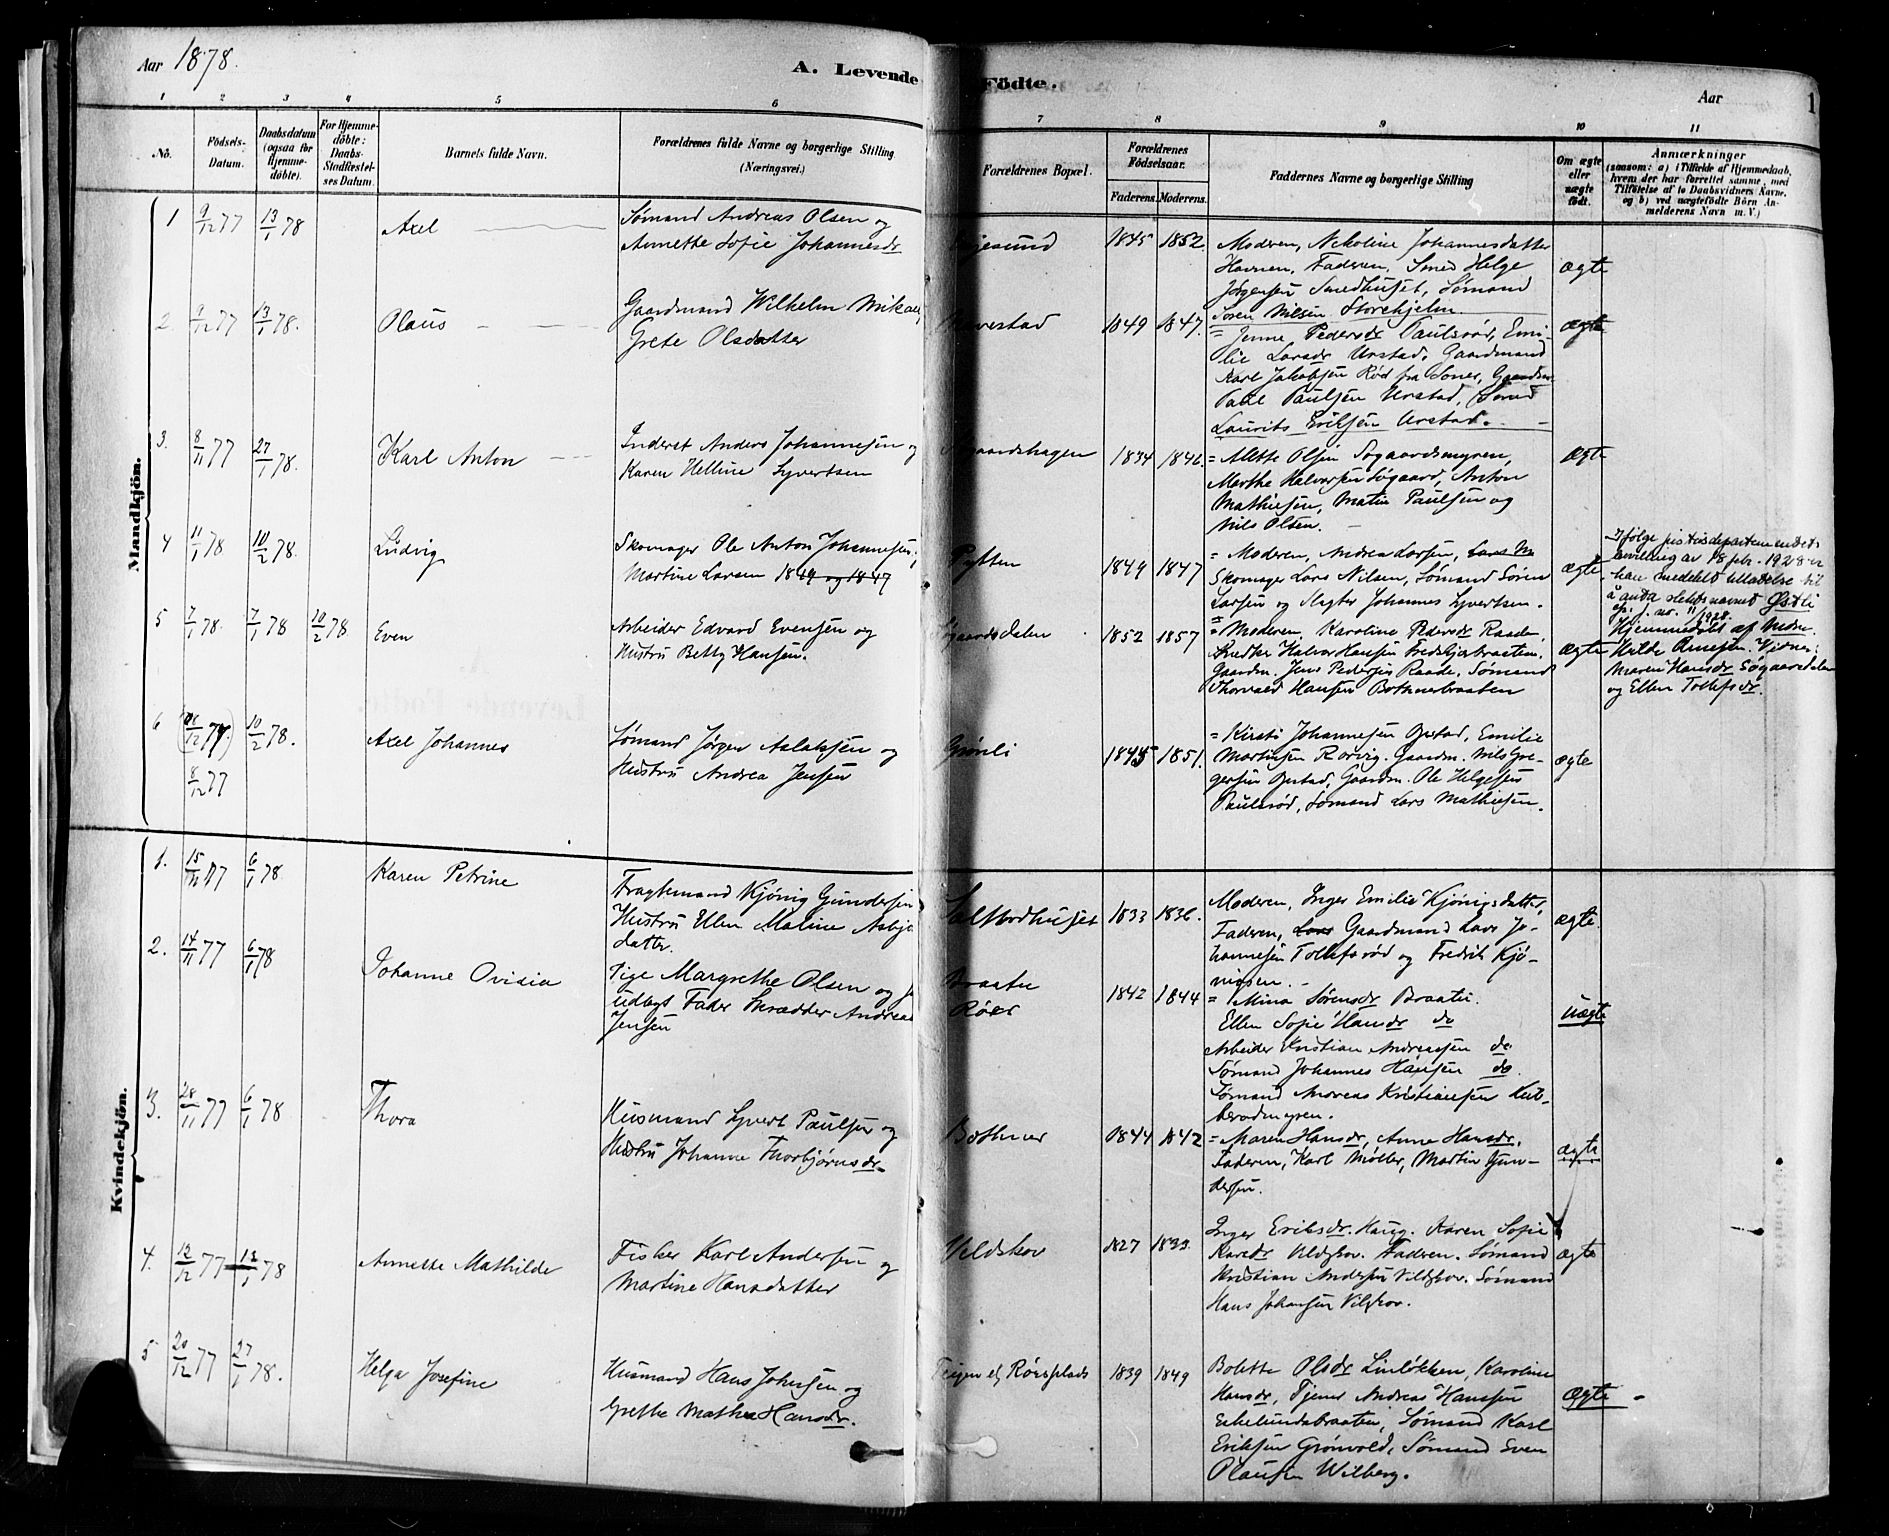 Aar 1878.
A. Levende Födte.
Aar
1
1 2 3 4 5 6 7 8 9 10 11
No.
Födsels-Datum.
Daabsdatum (ogsaa for Hjemme-döbte).
For Hjemme-döbte: Daabs-Stadfæstel-ses Datum.
Barnets fulde Navn.
Forældrenes fulde Navne og borgerlige Stilling
(Næringsvei.)
Forældrenes Bopæl.
Forældrenes Födselsaar.
Faderens. Moderens.
Faddernes Navne og borgerlige Stilling
Om ægte eller uægte födt.
Anmærkninger
(saasom: a) i Tilfælde af Hjemmedaab,
hvem der har forrettet samme, med
Tilföielse af to Daabsvidners Navne,
og b) ved uægtefödte Börn An-
melderens Navn m. V.)
Mandkjön.
1 9/12 77 13/1 78 Axel
Sømand Andreas Olsen og
Annette Sofie Johannesdr
1845 1852.
Moderen, Nikoline Johannesdatter
Havnen, Faderen, Smed Helge
Jørgensen Smedhuset, Sømand
Soren Nilsen Storehjelm.
ægte
2. 9/12 77 13/1 78. Olaus
Gaardmand Wilhelm Mikael
Grete Olsdatter
1849 1847.
= Jenne Pedersdr Paulsrød, Emi-
lie Larsdr Urstad, Gaardmand
Karl Jakobsen Rød fra Soner, Gaardm.
Paul Paulsen Urstad,
Laurits Eriksen Urstad.
ægte
3. 8/11 77 27/1 78. Karl Anton
Inderst Anders Johannesen og
Karen Helline Syvertsen
1834 1842
= Mette Olsen Søgaardsmyren,
Marthe Halvorsen Søgaard, Anton
Mathiesen, Matia Paulsen og
Nils Olsen.
Ægte
4 11/1 78 10/2 78. Ludvig
Skomager Ole Anton Johannesen,
Martine Larsen 1849 og 1847
Pytten
1849 1847
= Moderen, Andrea Larsen,
Skomager Lars Nilsen, Sømand Søren
Larsen og Slagter Johannes Syvertsen.
ægte
Ifølge justisdepartementets
bevilling av 18 febr. 1928 er
han meddelt tilladelse til
å anta slektsnavnet Østli
5 7/1 78. 7/1 78 10/2 78. Even
Arbeider Edvard Evensen og
Hustru Betty Hansen.
1852 1857
= Moderen, Karoline Pedersdr Raade,
Snedker Halvor Hansen Fredskjærbraaten,
Gaardm. Jens Pedersen Raade, Sømand
Thorvald Hansen Bothnerbraaten
ægte
Hjemmedøbt af Andr.
Hilde Arnesen. Vidner:
Maren Hansdr Søgaardsdalen
og Ellen Tollefsdr.
6 8/12 77 10/2 78. Axel Johannes
Sømand Jørgen Aslaksen og
Hustru Andrea Jensen
Grønli
1845 1851.
= Kirsti Johannesen Opstad, Emilie
Martinsen Rørvig. Gaardm. Nils Gre-
gersen Opstad, Gaardm. Ole Helgesen
Paulsrød, Sømand Lars Mathiesen.
ægte
Kvindekjön.
1. 15/11 77 6/1 78. Karen Petrine
Fragtemand Kjønig Gundersen
Hustru Ellen Maline Asbjø
datter.
Saltbodhuset
1833 1836.
Moderen, Inger Emilie Kjønigsdatter,
Faderen, Gaardmand Lars Jo-
hannesen Tollefsrød og Fredrik Kjø-
nigsen.
ægte.
2. 14/11 77 6/1 78 Johanne Ovisia
Pige Margrethe Olsen og
udlagt Fader Skrædder Andreas
Jensen
Braaten
Røer
1842 1844
= Mina Sørensdr Braaten.
Ellen Sofie Hansdr do
Arbeider Kristian Andreasen do
Sømand Johannes Hansen do.
Sømand Andreas Kristiansen Kul-
berødmyren.
uægte
3. 28/11 77 6/1 78 Thora
Husmand Syvert Paulsen og
Hustru Johanne Thorbjørnsdr
Bothner
1844 1842
= Maren Hansdr, Anne Hansdr,
Faderen, Karl Møller, Martin Gun-
dersen.
ægte
4. 12/12 77 13/1 78 Annette Mathilde
Fisker Karl Andersen og
Martine Hansdatter
Vildskov
1827 1833.
Inger Eriksdr. Haug. Karen Sofie
Karlsdr Vildskov. Faderen. Sømand
Kristian Andersen Vildskov. Sømand
Hans Johansen Vilskov.
ægte
5 20/12 77 27/1 78. Helga Josefine
Husmand Hans Johnsen og
Grethe Mathea Hansdr.
Teigen el. Rørsplads
1839 1849
Bolette Olsdr Linløkken, Karoline
Hansdr, Tjener Andreas Hansen
Ekelundsbraaten, Sømand Karl
Eriksen Grønvold, Sømand Even
Olausen Wilberg.
Ægte